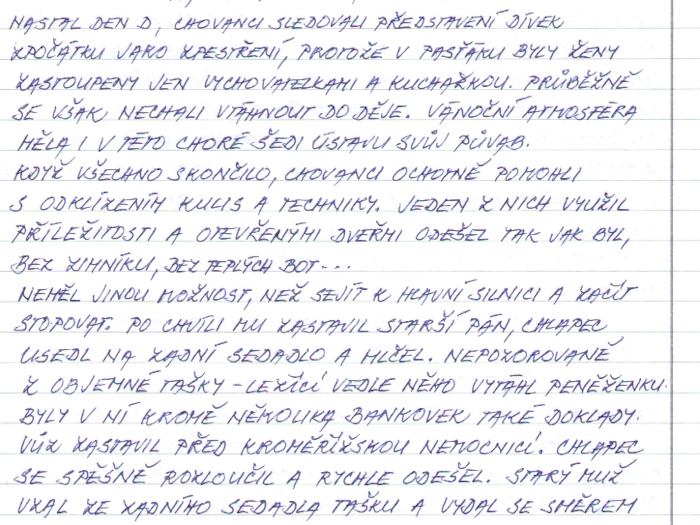 NASTAL DEN D, CHOVANCI SLEDOVALI PŘEDSTAVENÍ DÍVEK
ZPOČÁTKU JAKO ZPESTŘENÍ, PROTOŽE V PASŤÁKU BYLY ŽENY
ZASTOUPENY JEN VYCHOVATELKAMI A KUCHAŘKOU. PRŮBĚŽNĚ
SE VŠAK NECHALI VTÁHNOUT DO DĚJE. VÁNOČNÍ ATMOSFÉRA
MĚLA I V TÉTO CHORÉ ŠEDI ÚSTAVU SVŮJ PŮVAB.
KDYŽ VŠECHNO SKONČILO, CHOVANCI OCHOTNĚ POMOHLI
S ODKLÍZENÍM KULIS A TECHNIKY. JEDEN Z NICH VYUŽIL
PŘÍLEŽITOSTI A OTEVŘENÝMI DVEŘMI ODEŠEL TAK JAK BYL,
BEZ ZIMNÍKU, BEZ TEPLÝCH BOT...
NEMĚL JINOU MOŽNOST, NEŽ SEJÍT K HLAVNÍ SILNICI A ZAČÍT
STOPOVAT. PO CHVÍLI MU ZASTAVIL STARŠÍ PÁN, CHLAPEC
USEDL NA ZADNÍ SEDADLO A MLČEL. NEPOZOROVANĚ
Z OBJEMNÉ TAŠKY - LEŽÍCÍ VEDLE NĚHO VYTÁHL PENĚŽENKU.
BYLY V NÍ KROMĚ NĚKOLIKA BANKOVEK TAKÉ DOKLADY.
VŮZ ZASTAVIL PŘED KROMĚŘÍŽSKOU NEMOCNICÍ. CHLAPEC
SE SPĚŠNĚ ROZLOUČIL A RYCHLE ODEŠEL. STARÝ MUŽ
VZAL ZE ZADNÍHO SEDADLA TAŠKU A VYDAL SE SMĚREM